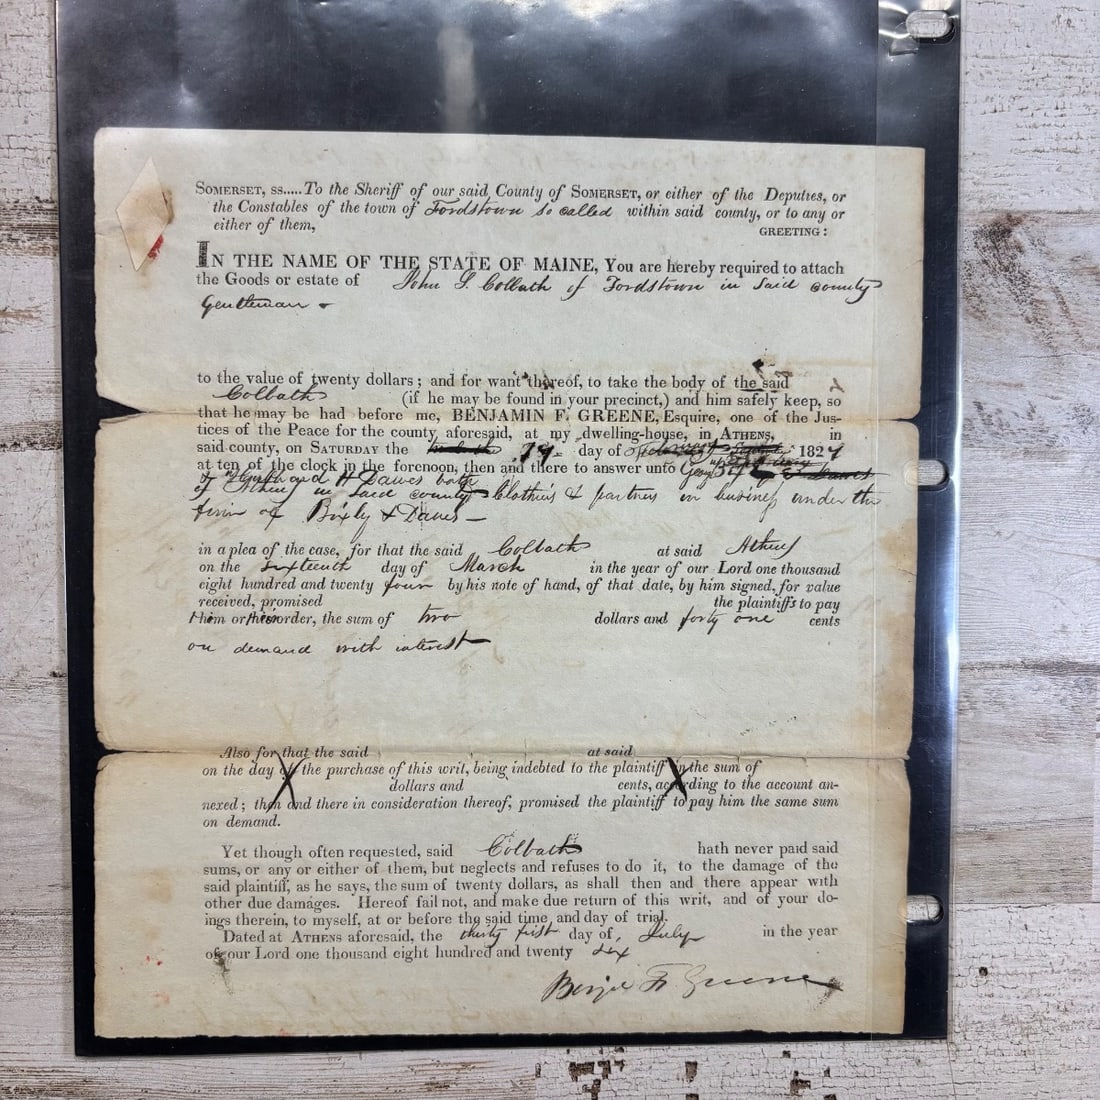 SOMERSET, ss.....To the Sheriff of our said County of SOMERSET, or either of the Deputies, or
the Constables of the town of Fordstown so called within said county, or to any or
either of them,
GREETING:
IN THE NAME OF THE STATE OF MAINE, You are hereby required to attach
the Goods or estate of John Colbath of Fordstown in said county
Gentleman
to the value of twenty dollars; and for want thereof, to take the body of the said
Colbath (if he may be found in your precinct,) and him safely keep, so
that he may be had before me, BENJAMIN F. GREENE, Esquire, one of the Jus-
tices of the Peace for the county aforesaid, at my dwelling-house, in ATHENS, in
said county, on SATURDAY the day of 1827
at ten of the clock in the forenoon, then and there to answer unto
H Dawes both
of Athens in said county Clothiers & partners in business under the
firm of Bixby & Dawes
in a plea of the case, for that the said Colbath at said Athens
on the sixteenth day of March in the year of our Lord one thousand
eight hundred and twenty four by his note of hand, of that date, by him signed, for value
received, promised the plaintiffs to pay
them or their order, the sum of two dollars and forty one cents
on demand with interest
Also for that the said at said
on the day of the purchase of this writ, being indebted to the plaintiff in the sum of
dollars and cents, according to the account an-
nexed; then and there in consideration thereof, promised the plaintiff to pay him the same sum
on demand.
Yet though often requested, said Colbath hath never paid said
sums, or any or either of them, but neglects and refuses to do it, to the damage of the
said plaintiff, as he says, the sum of twenty dollars, as shall then and there appear with
other due damages. Hereof fail not, and make due return of this writ, and of your do-
ings therein, to myself, at or before the said time, and day of trial.
Dated at ATHENS aforesaid, the thirty first day of July in the year
of our Lord one thousand eight hundred and twenty six
Benja F. Greene